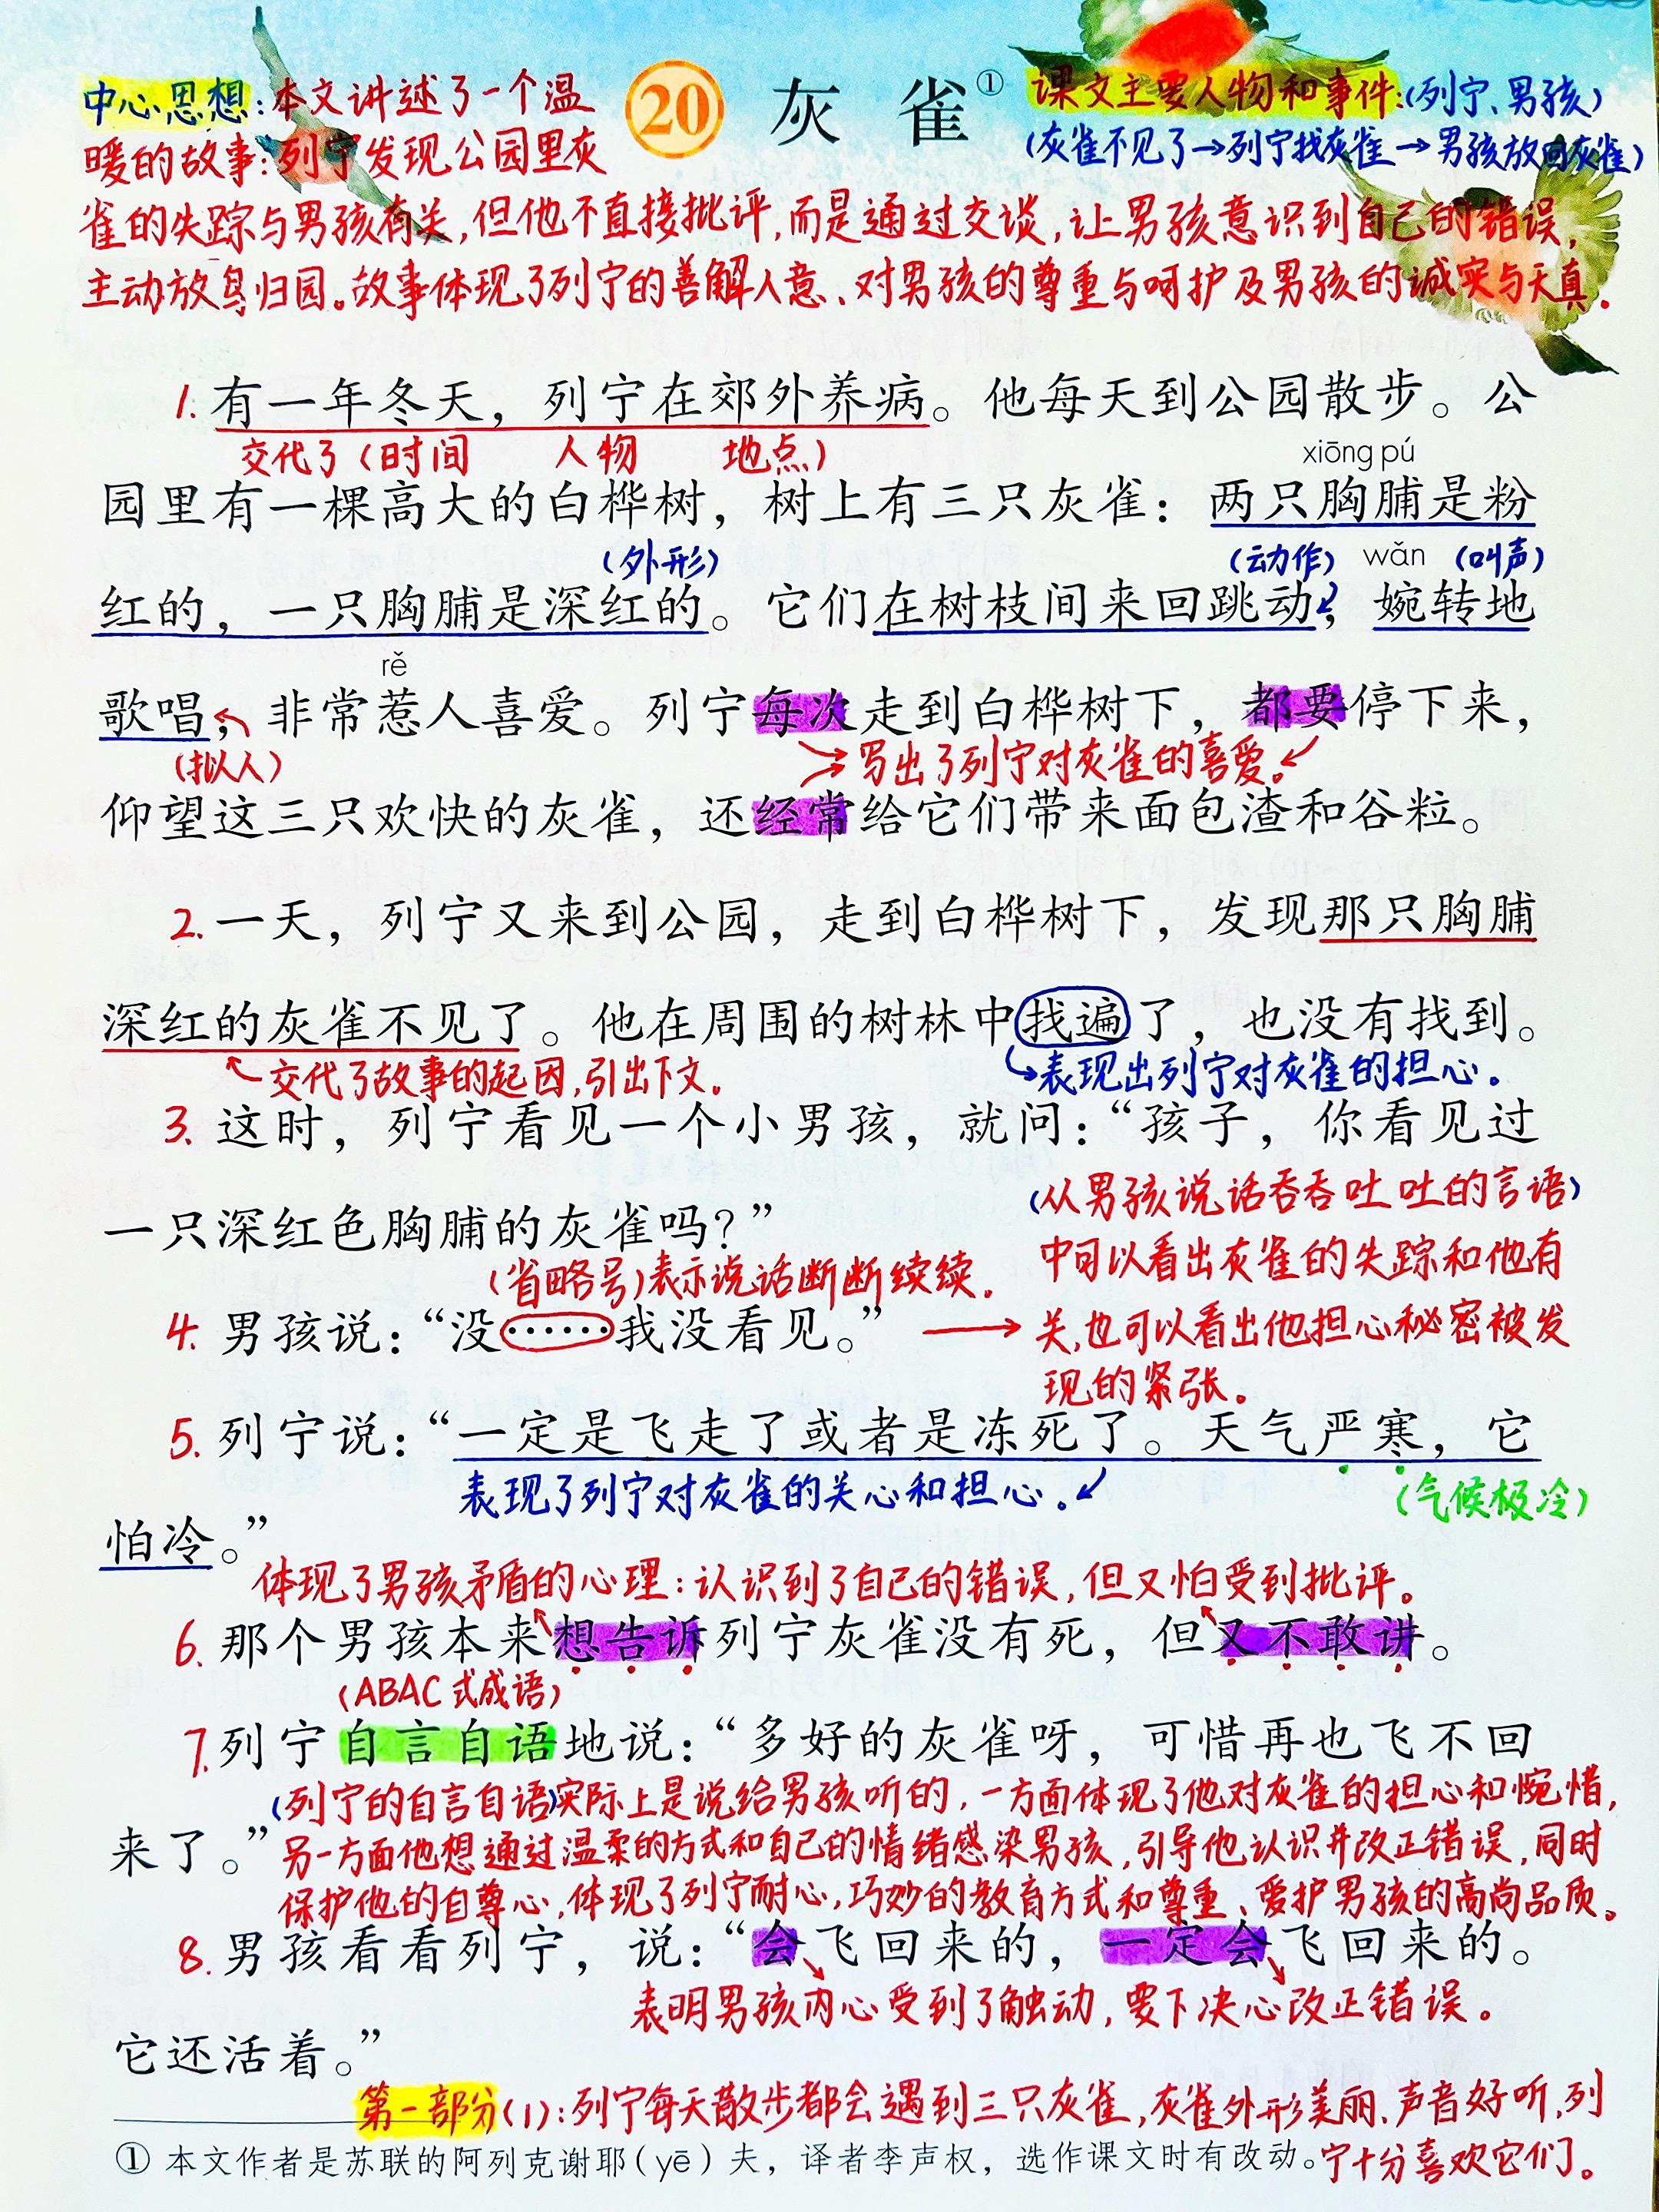 中心思想:本文讲述了一个温
暖的故事:列宁发现公园里灰
20 灰雀①
课文主要人物和事件:(列宁、男孩)
(灰雀不见了→列宁找灰雀→男孩放回灰雀)
雀的失踪与男孩有关,但他不直接批评,而是通过交谈,让男孩意识到自己的错误,
主动放鸟归园。故事体现了列宁的善解人意、对男孩的尊重与呵护及男孩的诚实与天真.
1.有一年冬天，列宁在郊外养病。他每天到公园散步。公
交代了(时间 人物 地点)
xiōng pú
园里有一棵高大的白桦树，树上有三只灰雀：两只胸脯是粉
(外形) (动作) wǎn (叫声)
红的，一只胸脯是深红的。它们在树枝间来回跳动，婉转地
rě
歌唱，非常惹人喜爱。列宁每次走到白桦树下，都要停下来，
(拟人) 写出了列宁对灰雀的喜爱。
仰望这三只欢快的灰雀，还经常给它们带来面包渣和谷粒。
2.一天，列宁又来到公园，走到白桦树下，发现那只胸脯
深红的灰雀不见了。他在周围的树林中找遍了，也没有找到。
交代了故事的起因,引出下文. 表现出列宁对灰雀的担心.
3.这时，列宁看见一个小男孩，就问：“孩子，你看见过
一只深红色胸脯的灰雀吗？”
(省略号)表示说话断断续续.
4.男孩说：“没……我没看见。”
(从男孩说话吞吞吐吐的言语)
中可以看出灰雀的失踪和他有
关,也可以看出他担心秘密被发
现的紧张。
5.列宁说：“一定是飞走了或者是冻死了。天气严寒，它
表现了列宁对灰雀的关心和担心. (气候极冷)
怕冷。”
体现了男孩矛盾的心理:认识到了自己的错误,但又怕受到批评。
6.那个男孩本来想告诉列宁灰雀没有死，但又不敢讲。
(ABAC式成语)
7.列宁自言自语地说：“多好的灰雀呀，可惜再也飞不回
(列宁的自言自语)实际上是说给男孩听的,一方面体现了他对灰雀的担心和惋惜,
来了。”
另一方面他想通过温柔的方式和自己的情绪感染男孩,引导他认识并改正错误,同时
保护他的自尊心,体现了列宁耐心,巧妙的教育方式和尊重、爱护男孩的高尚品质。
8.男孩看看列宁，说：“会飞回来的，一定会飞回来的。
表明男孩内心受到了触动,要下决心改正错误.
它还活着。”
第一部分(1):列宁每天散步都会遇到三只灰雀,灰雀外形美丽、声音好听,列
宁十分喜欢它们。
①本文作者是苏联的阿列克谢耶（yē）夫，译者李声权，选作课文时有改动。